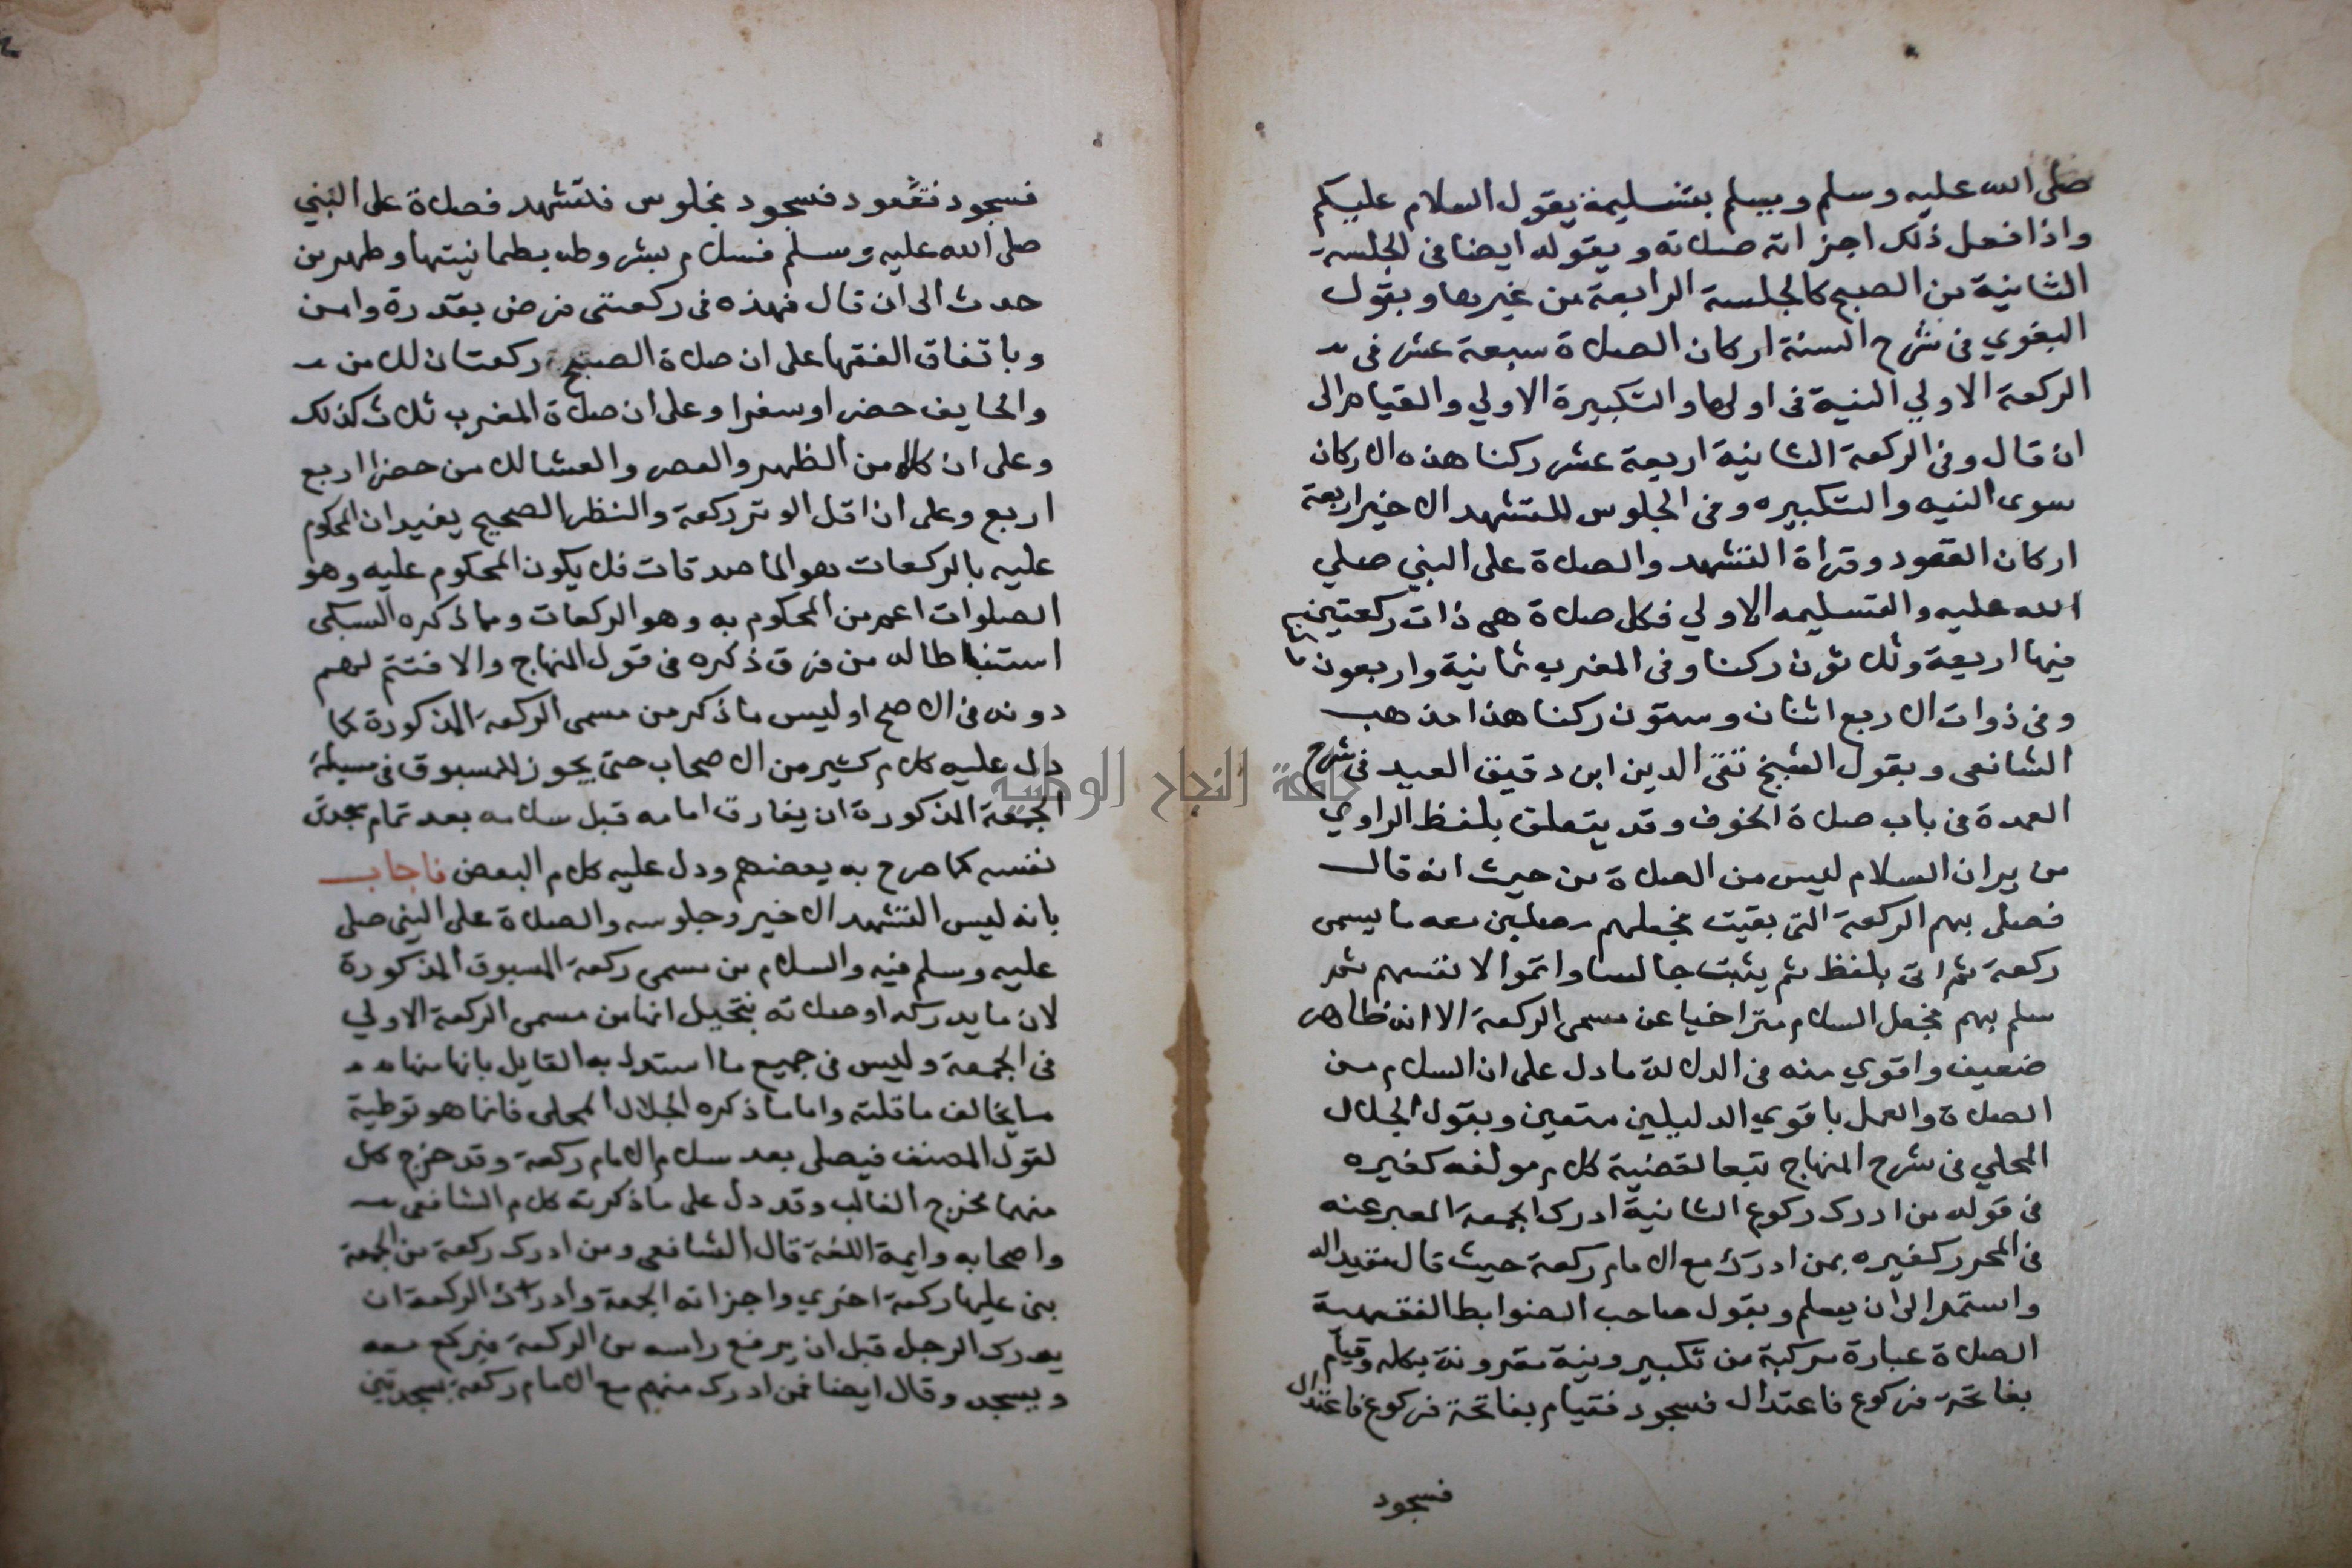 صلى الله عليه وسلم ويسلم بتسليمة يقول السلام عليكم
واذا فعل ذلك اجزاته صلاته ويقوله ايضا فى الجلسة
الثانية من الصبح كالجلسة الرابعة من غيرها وبقول
البغوي فى شرح السنة اركان الصلاة سبعة عشر فى
الركعة الاولي النية فى اولها والتكبيرة الاولي والقيام الى
ان قال وفى الركعة الثانية اربعة عشر ركنا هذه الاركان
سوى النيه والتكبيره وفى الجلوس للتشهد الاخير اربعة
اركان القعود وقراة التشهد والصلاة على النبي صلي
الله عليه والتسليمه الاولي فكل صلاة هى ذات ركعتين
فيها اربعة وثلاثون ركنا وفى المغرب ثمانية واربعون
وفى ذوات الاربع اثنان وستون ركنا هذا مذهب
الشافعى وبقول الشيخ تقى الدين ابن دقيق العيد فى شرح
العمدة فى باب صلاة الخوف وقد يتعلق بلفظ الراوي
من يران السلام ليس من الصلاة من حيث انه قال
فصلى بهم الركعة التى بقيت فجعلهم مصلين معه ما يسمى
ركعة ثم اتى بلفظ ثم يثبت جالسا واتموا لانفسهم ثم
سلم بهم فجعل السلام متراخيا عن مسمى الركعة الا انه ظاهر
ضعيف واقوي منه فى الدلالة ما دل على ان السلام من
الصلاة والعمل باقوي الدليلين متعين وبقول الجلال
المحلي فى شرح المنهاج تبعا لقضية كلام مولفه كغيره
فى قوله من ادرك ركوع الثانية ادرك الجمعة المعبر عنه
فى المحرر كغيره بمن ادرك مع الامام ركعة حيث قال مقيدا له
واستمر الى ان يسلم وبقول صاحب الضوابط الفقهية
الصلاة عبارة مركبة من تكبير ونية مقرونة بكله وقيام
بفاتحة فركوع فاعتدال فسجود فقيام بفاتحة فركوع فاعتدال
فسجود
فسجود فقعود فسجود فجلوس فتشهد فصلاة على النبي
صلى الله عليه وسلم فسلام بشروطه بطمانيتها وطهر من
حدث الى ان قال فهذه فى ركعتى فرض بقدرة وامن
وباتفاق الفقها على ان صلاة الصبح ركعتان للامن
والخايف حضرا وسفرا وعلى ان صلاة المغرب ثلاث كذلك
وعلى ان كلا من الظهر والعصر والعشا لك من حضرا اربع
اربع وعلى ان اقل الوتر ركعة والنظر الصحيح يفيد ان المحكوم
عليه بالركعات هو الماصدقات فلا يكون المحكوم عليه وهو
الصلوات اعم من المحكوم به وهو الركعات وما ذكره السبكى
استنباطا له من فرق ذكره فى قول المنهاج والا فتتم لهم
دونه فى الاصح او ليس ما ذكر من مسمى الركعة المذكورة كما
دل عليه كلام كثير من الاصحاب حتى يجوز للمسبوق فى مسيلة
الجمعة المذكورة ان يفارق امامه قبل سلامه بعد تمام سجدتى
نفسه كما صرح به بعضهم ودل عليه كلام البعض فاجاب
بانه ليس التشهد الاخير وجلوسه والصلاة على النبى صلى
عليه وسلم فيه والسلام من مسمى ركعة المسبوق المذكورة
لان ما يدركه اوصلاته بتخيل انها من مسمى الركعة الاولي
فى الجمعة وليس فى جميع ما استدل به القايل بانها منها
ما يخالف ما قلته واما ما ذكره الجلال المحلى فانما هو توطية
لقول المصنف فيصلى بعد سلام الامام ركعة وقد خرج كل
منهما مخرج الغالب وقد دل على ما ذكرته كلام الشافعى
واصحابه وايمة اللغة قال الشافعى ومن ادرك ركعة من الجمعة
بنى عليها ركعة اخري واجزاته الجمعة وادراك الركعة ان
يدرك الرجل قبل ان يرفع راسه من الركعة فيركع معه
ويسجد وقال ايضا فمن ادرك منهم مع الامام ركعة بسجدتين
جامعة النجاح الوطنية